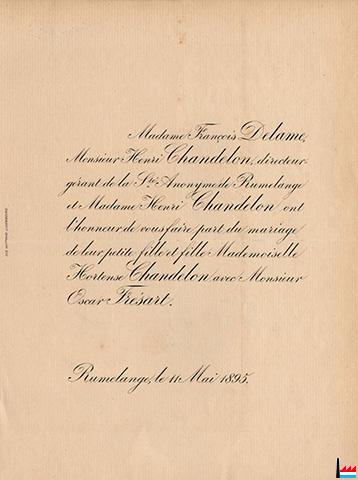 Madame François Delame,
Monsieur Henri Chandelon, directeur-
gérant de la Sté Anonyme de Rumelange
et Madame Henri Chandelon ont
l'honneur de vous faire part du mariage
de leur petite fille et fille Mademoiselle
Hortense Chandelon avec Monsieur
Oscar Frésart.
Rumelange, le 11 Mai 1895.